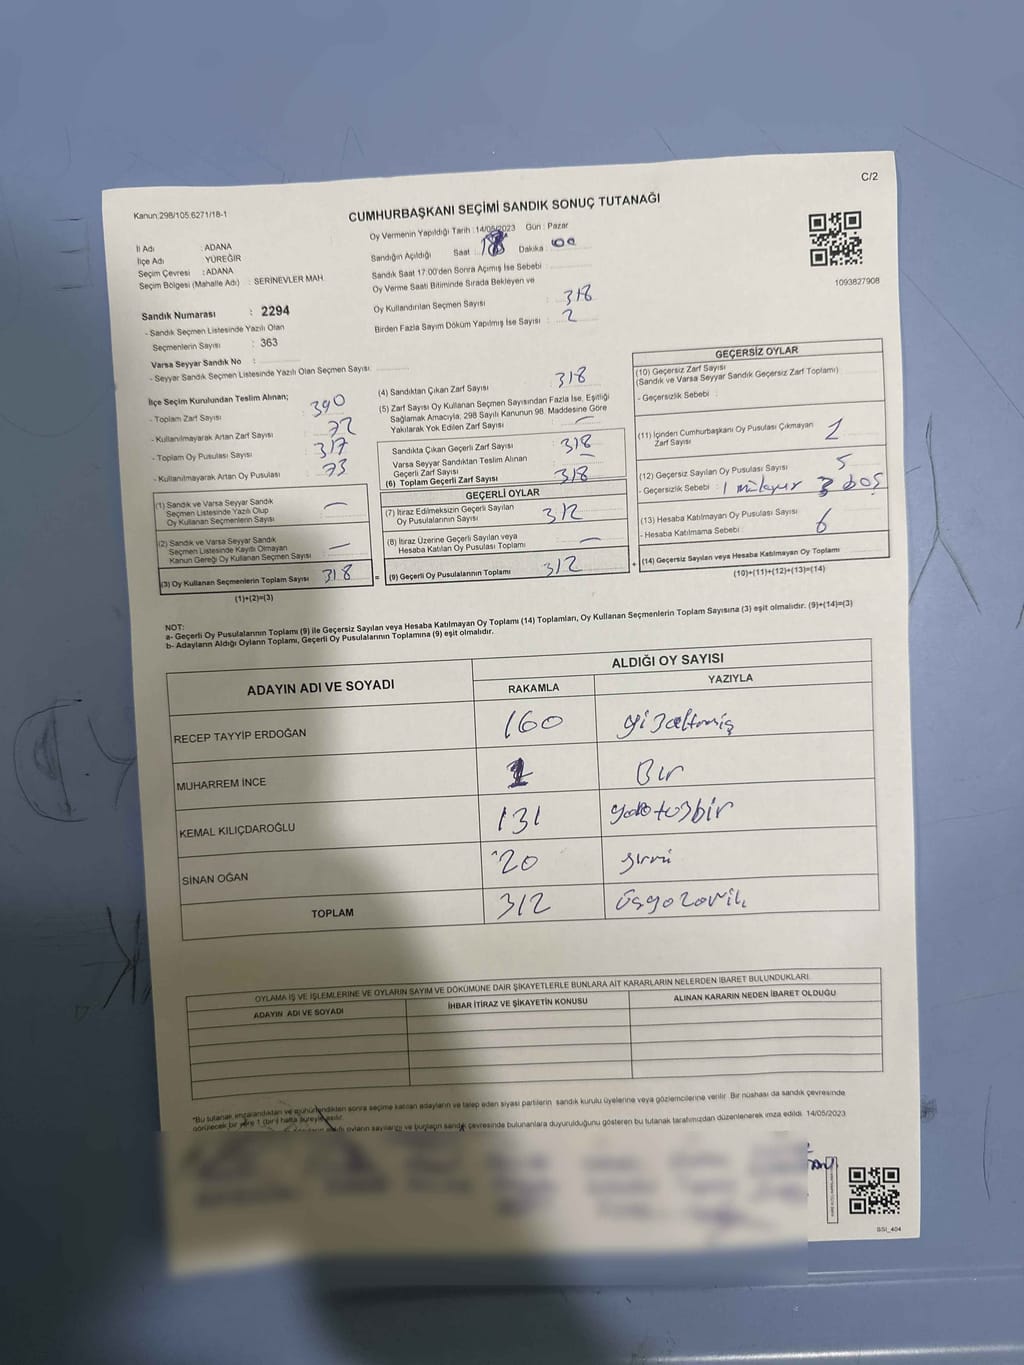 C/2
Kanun:298/105:6271/18-1
CUMHURBAŞKANI SEÇİMİ SANDIK SONUÇ TUTANAĞI
İl Adı : ADANA
İlçe Adı : YÜREĞİR
Seçim Çevresi : ADANA
Seçim Bölgesi (Mahalle Adı) : SERİNEVLER MAH.
Sandık Numarası : 2294
- Sandık Seçmen Listesinde Yazılı Olan
Seçmenlerin Sayısı : 363
Varsa Seyyar Sandık No :
- Seyyar Sandık Seçmen Listesinde Yazılı Olan Seçmen Sayısı:
Oy Vermenin Yapıldığı Tarih :14/05/2023 Gün : Pazar
Sandığın Açıldığı Saat : 18 Dakika : 00
Sandık Saat 17.00'den Sonra Açımış İse Sebebi :
Oy Verme Saati Bitiminde Sırada Bekleyen ve
Oy Kullandırılan Seçmen Sayısı : 318
Birden Fazla Sayım Döküm Yapılmış İse Sayısı : 2
1093827908
İlçe Seçim Kurulundan Teslim Alınan;
- Toplam Zarf Sayısı : 390
- Kullanılmayarak Artan Zarf Sayısı : 72
- Toplam Oy Pusulası Sayısı : 317
- Kullanılmayarak Artan Oy Pusulası : 73
(1) Sandık ve Varsa Seyyar Sandık
Seçmen Listesinde Yazılı Olup
Oy Kullanan Seçmenlerin Sayısı —
(2) Sandık ve Varsa Seyyar Sandık
Seçmen Listesinde Kayıtlı Olmayan
Kanun Gereği Oy Kullanan Seçmen Sayısı —
(3) Oy Kullanan Seçmenlerin Toplam Sayısı 318
(1)+(2)=(3)
(4) Sandıktan Çıkan Zarf Sayısı : 318
(5) Zarf Sayısı Oy Kullanan Seçmen Sayısından Fazla İse, Eşitliği
Sağlamak Amacıyla, 298 Sayılı Kanunun 98. Maddesine Göre
Yakılarak Yok Edilen Zarf Sayısı : —
Sandıkta Çıkan Geçerli Zarf Sayısı : 318
Varsa Seyyar Sandıktan Teslim Alınan
Geçerli Zarf Sayısı : —
(6) Toplam Geçerli Zarf Sayısı : 318
GEÇERLİ OYLAR
(7) İtiraz Edilmeksizin Geçerli Sayılan
Oy Pusulalarının Sayısı : 312
(8) İtiraz Üzerine Geçerli Sayılan veya
Hesaba Katılan Oy Pusulası Toplamı : —
= (9) Geçerli Oy Pusulalarının Toplamı : 312
GEÇERSİZ OYLAR
(10) Geçersiz Zarf Sayısı
(Sandık ve Varsa Seyyar Sandık Geçersiz Zarf Toplamı) :
- Geçersizlik Sebebi :
(11) İçinden Cumhurbaşkanı Oy Pusulası Çıkmayan
Zarf Sayısı : 1
(12) Geçersiz Sayılan Oy Pusulası Sayısı : 5
- Geçersizlik Sebebi : 1 3 boş
(13) Hesaba Katılmayan Oy Pusulası Sayısı :
- Hesaba Katılmama Sebebi : 6
+ (14) Geçersiz Sayılan veya Hesaba Katılmayan Oy Toplamı
(10)+(11)+(12)+(13)=(14)
NOT:
a- Geçerli Oy Pusulalarının Toplamı (9) ile Geçersiz Sayılan veya Hesaba Katılmayan Oy Toplamı (14) Toplamları, Oy Kullanan Seçmenlerin Toplam Sayısına (3) eşit olmalıdır. (9)+(14)=(3)
b- Adayların Aldığı Oyların Toplamı, Geçerli Oy Pusulalarının Toplamına (9) eşit olmalıdır.
ADAYIN ADI VE SOYADI ALDIĞI OY SAYISI
RAKAMLA YAZIYLA
RECEP TAYYIP ERDOĞAN 160
MUHARREM İNCE 1 Bir
KEMAL KILIÇDAROĞLU 131
SİNAN OĞAN 20
TOPLAM 312
OYLAMA İŞ VE İŞLEMLERİNE VE OYLARIN SAYIM VE DÖKÜMÜNE DAİR ŞİKAYETLERLE BUNLARA AİT KARARLARIN NELERDEN İBARET BULUNDUKLARI
ADAYIN ADI VE SOYADI İHBAR İTİRAZ VE ŞİKAYETİN KONUSU ALINAN KARARIN NEDEN İBARET OLDUĞU
*Bu tutanak imzalandıktan ve mühürlendikten sonra seçime katılan adayların ve talep eden siyasi partilerin sandık kurulu üyelerine veya gözlemcilerine verilir. Bir nüshası da sandık çevresinde
görülecek bir yere 1 (bir) hafta süreyle asılır.
oyların sayılarını ve bunların sandık çevresinde bulunanlara duyurulduğunu gösteren bu tutanak tarafımızdan düzenlenerek imza edildi. 14/05/2023
SSI_404